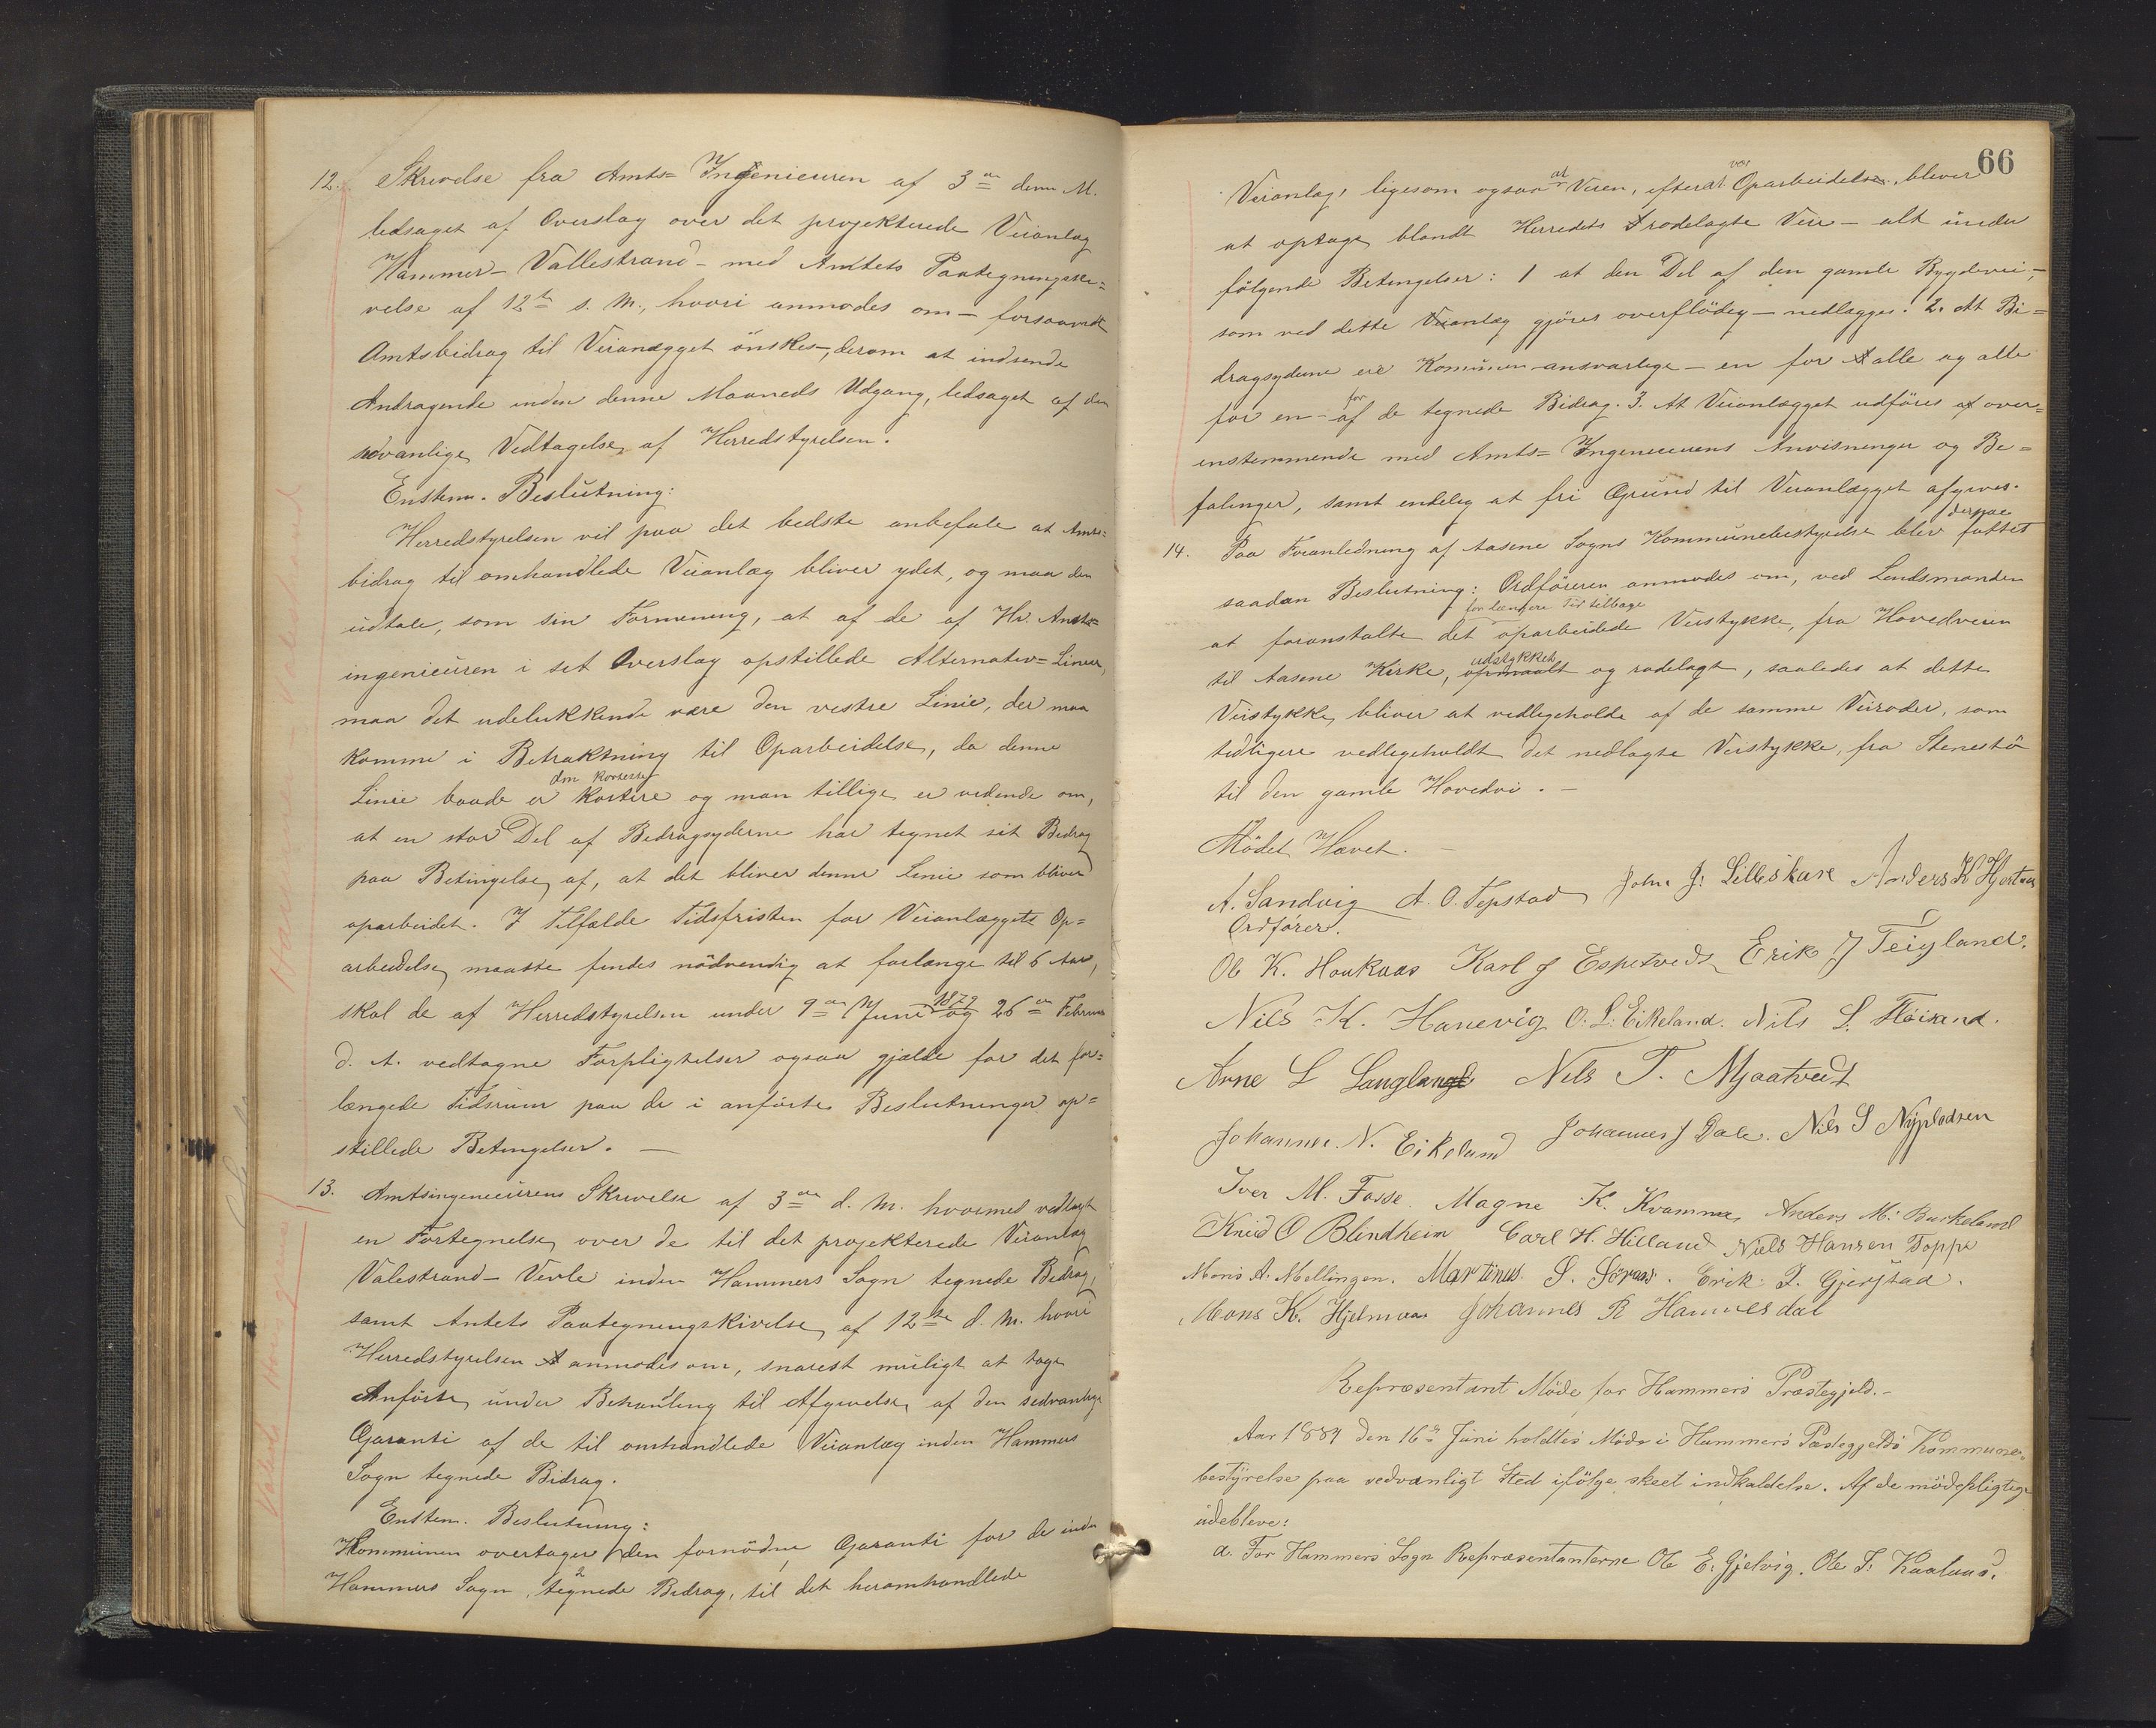 12. Skrivelse fra Amts= Ingenieuren af 3die denne M.
ledsaget af Overslag over det projekterede Veianlæg
Hammer - Vallestrand - med Amtets Paategningsskri=
velse af 12te s. M., hvori anmodes om - forsaavidt
Amtsbidrag til Veianlægget önskes -, derom at indsende
Andragende inden denne Maaneds Udgang, ledsaget af den
sedvanlige Vedtagelse af Herredstyrelsen.
Enstem. Beslutning:
Herredstyrelsen vil paa det bedste anbefale at Amts=
bidrag til omhandlede Veianlæg bliver ydet, og maa den
udtale, som sin Formening, at af de af Hr. Amts=
ingenieuren i set Overslag opstillede Alternativ= Linier,
maa det udelukkende være den vestre Linie, der maa
komme i Betraktning til Oparbeidelse, da denne
den korteste
Linie baade er kortere og man tillige er vidende om,
at en stor Del af Bidragsyderne har tegnet sit Bidrag
paa Betingelse af, at det bliver denne Linie som bliver
oparbeidet. I Tilfælde Tidsfristen for Veianlæggets Op=
arbeidelse maatte findes nödvendig at forlænge til 6 Aar,
1879
skal de af Herredstyrelsen under 9de Juni og 26de Februar
d. A. vedtagne Forpligtelser ogsaa gjælde for det for=
længede Tidsrum paa de i anförte Beslutninger op=
stillede Betingelser. —
13. Amtsingenieurens Skrivelse af 3die d. M. hvormed vedlagt
en Fortegnelse over de til det projekterede Veianlæg
Valestrand - Vevle inden Hammers Sogn tegnede Bidrag,
samt Amtets Paategningskrivelse af 12te d. M. hvori
Herredstyrelsen anmodes om, snarest muligt at tage
Anförte under Behanling til Afgivelse af den sedvanlige
Garanti af de til omhandlede Veianlæg inden Hammers
Sogn tegnede Bidrag.
Enstem. Beslutning:
Kommunen overtager den fornödne Garanti for de inden
Hammers Sogn tegnede Bidrag, til det heromhandlede
66
at vor
Veianlæg, ligesom ogsaa Veien, efterat Oparbeidelse, bliver
at optage blandt Herredets rodelagte Veie - alt under
fölgende Betingelser: 1 at den Del af den gamle Bygdevei -,
som ved dette Veianlæg gjöres overflödig - nedlægges. 2. At Bi=
dragsyderne ere Kommunen ansvarlige - en for alle og alle
for
for en - af de tegnede Bidrag. 3. At Veianlægget udföres over=
enstemmende med Amts= Ingenieurens Anvisninger og Be=
falinger, samt endelig at fri Grund til Veianlægget afgives.
derpaa
14. Paa Foranledning af Aasene Sogns Kommunebestyrelse blev fattet
saadan Beslutning: Ordföreren anmodes om, ved Lendsmanden
for længere Tid tilbage
at foranstalte det oparbeidede Veistykke, fra Hovedveien
udstykket
til Aasene Kirke, opmaalt og rodelagt, saaledes at dette
Veistykke bliver at vedligeholde af de samme Veiroder, som
tidligere vedligeholdt det nedlagte Veistykke, fra Stenestö
til den gamle Hovedvei. —
Mödet Hævet. —
A. Sandvig A. O. Tepstad John J. Lilleskare Anders K Hjertaas
Ordförer.
Ole K. Haukaas Karl J Espetveds Erik J Teigland.
Nils K. Hanevig O. L. Eikeland. Nils L. Flöisand.
Arne L Langland Nils T. Mjaatvedt
Johannes N. Eikeland Johannes J Dale. Nils S
Iver M. Fosse. Magne K. Kvamme Anders M. Burkeland
Knud O Blindheim Carl H. Hilland Niels Hansen Toppe
Mons A. Mellingen. Martinus S. Söraas. Erik. I. Gjerstad.
Mons K. Hjelmaas Johannes R Hannesdal
Repræsentant Möde for Hammers Præstegjeld. -
Aar 1884 den 16de Juni holdtes Möde i Hammers Præstegjelds Kommune=
bestyrelse paa sedvanligt Sted ifölge skeet indkaldelse. Af de mödepligtige
udebleve:
a. For Hammers Sogn Repræsentanterne Ole E. Gjelvig. Ole I. Kaalaas.